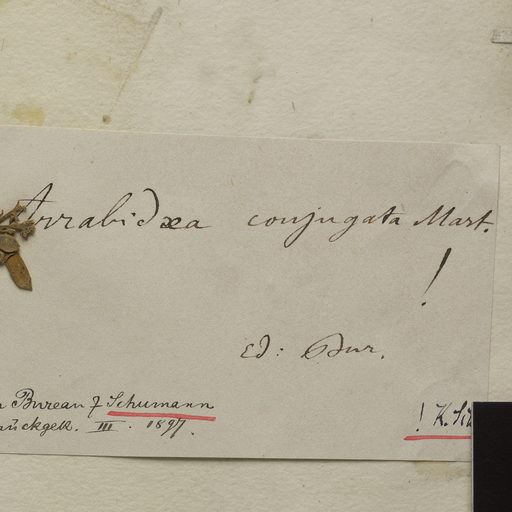 Arrabidæa conjugata Mart.
!
Ed: Bur.
Bureau & Schumann
III. 1897.
! K.